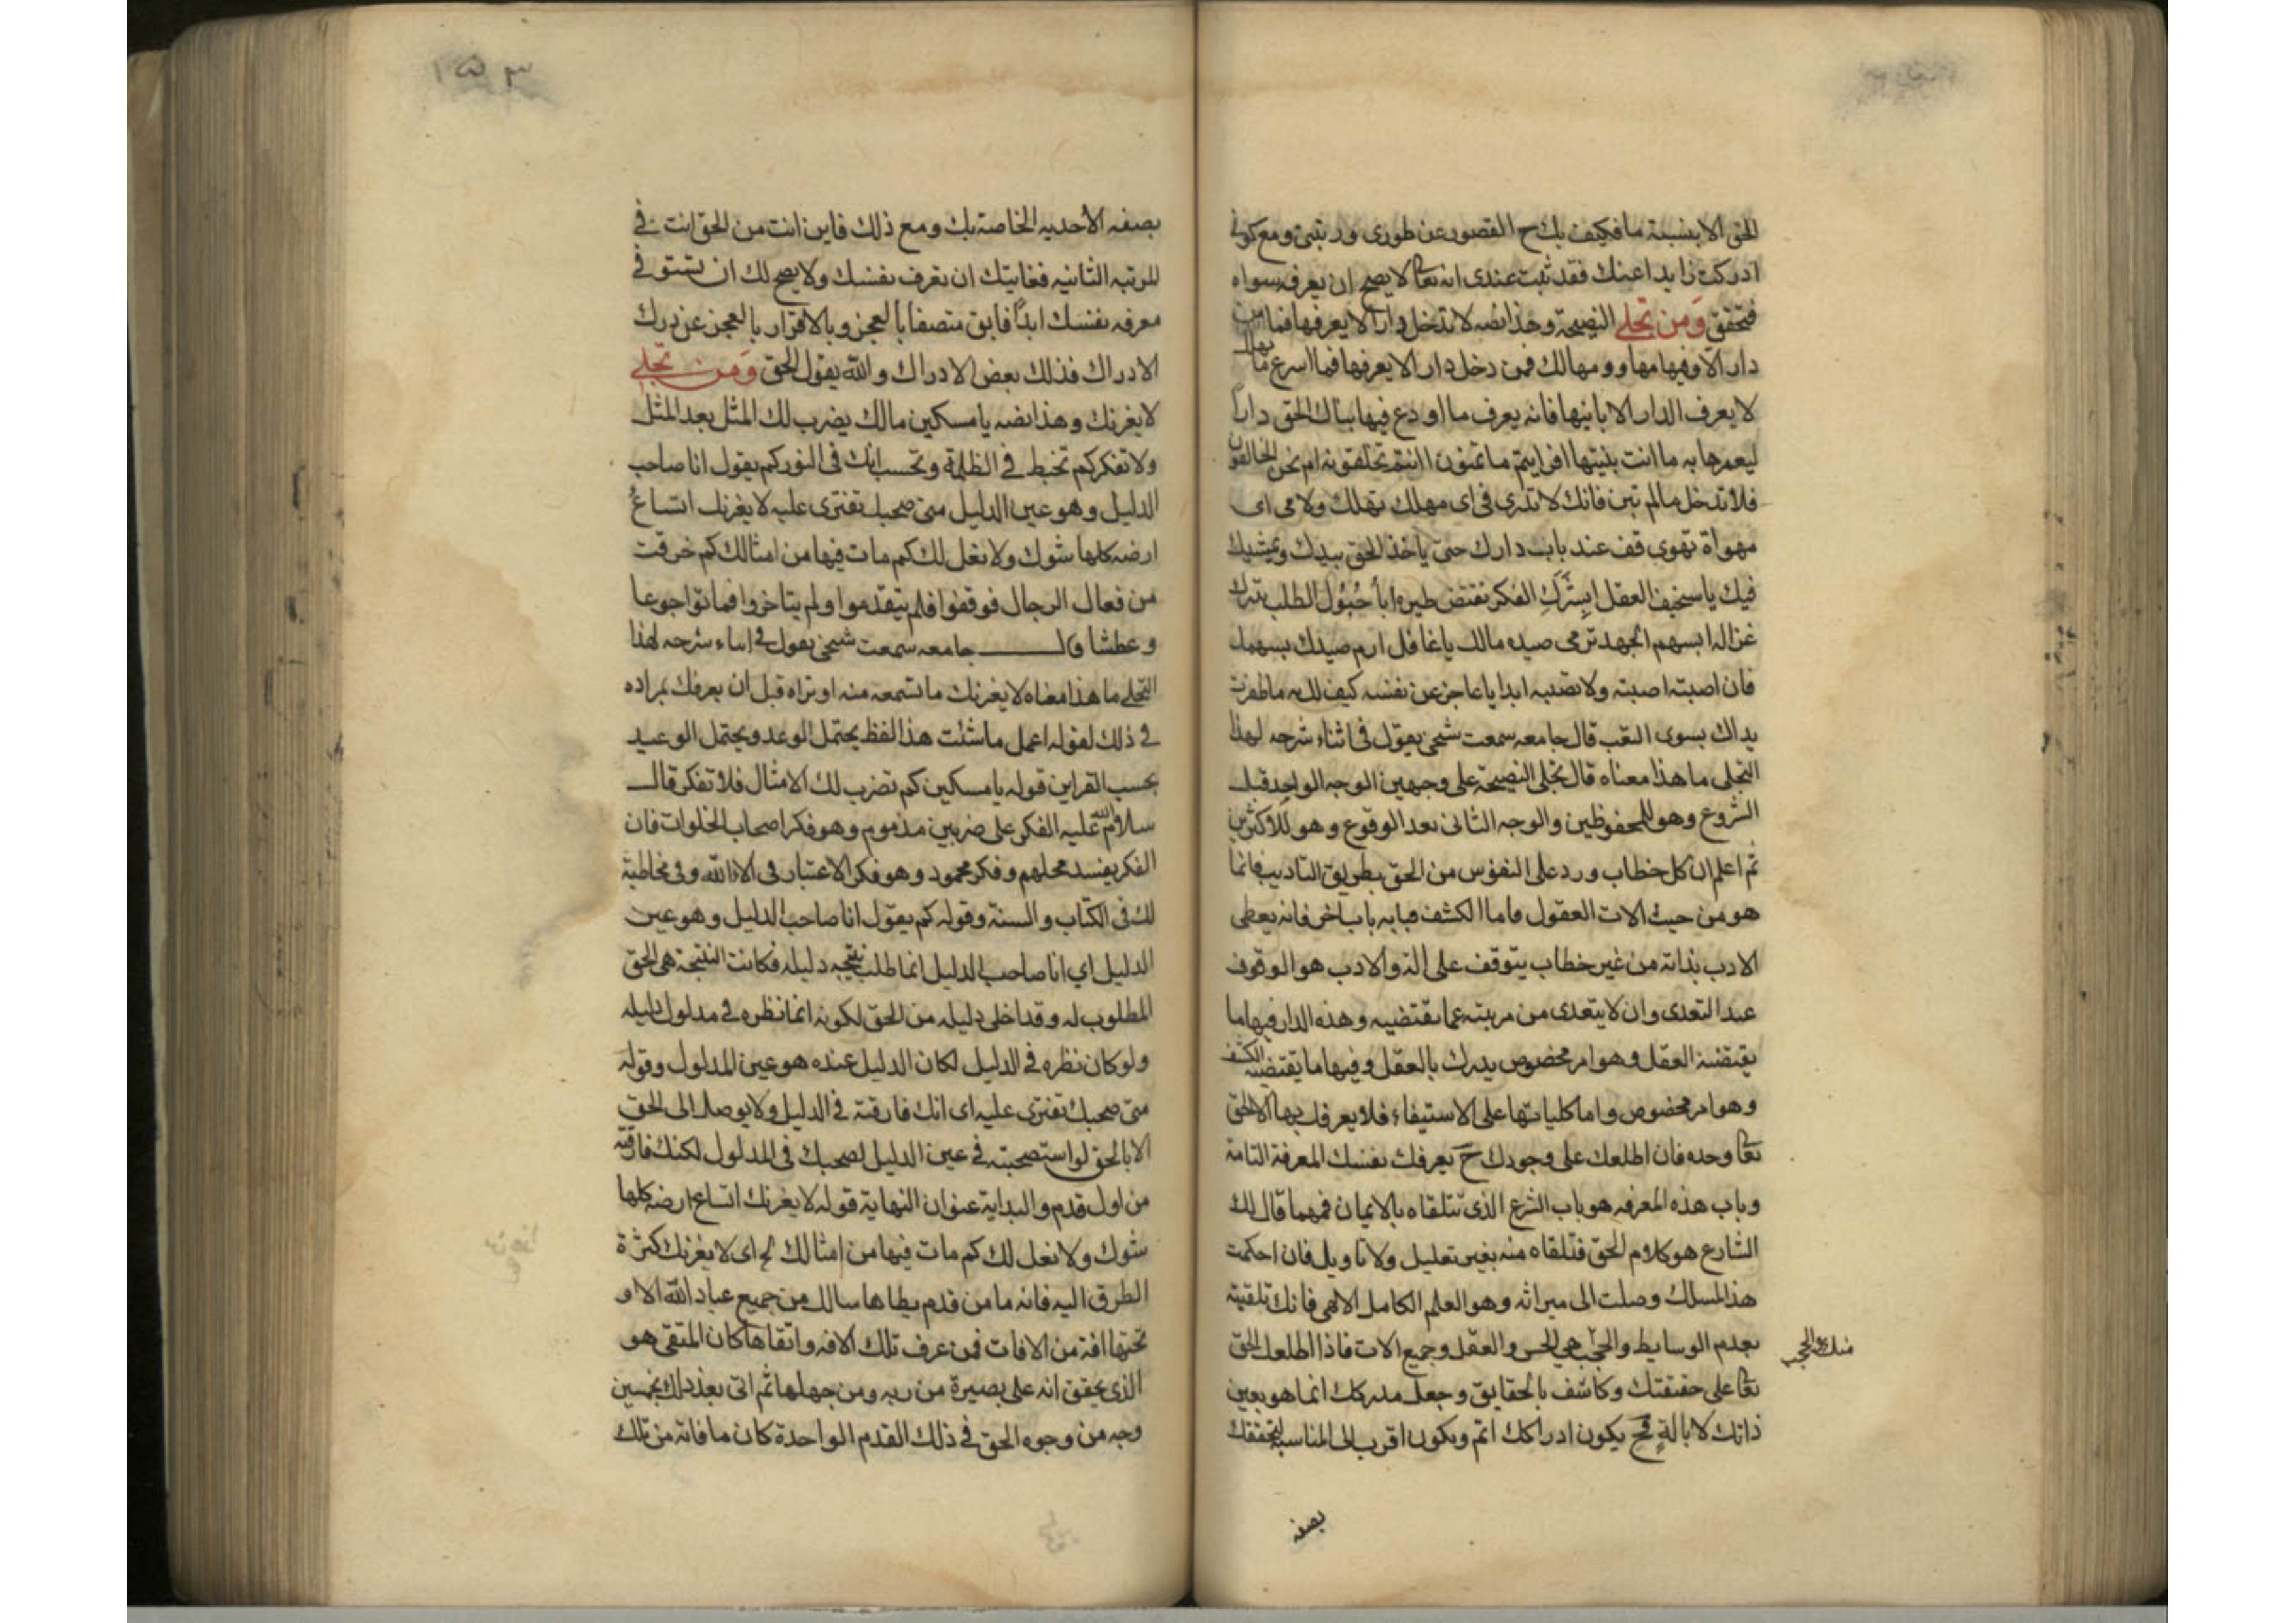 الحق الا بنسبة ما فكيف بك ح القصور عن طورى ورتبتى ومع كونى
ادركت زايدا عنك فقد ثبت عندى انه تعا لا يصح ان يعرفه سواه
فتحقق وَمن تجلي النصيحة وهذا نصه لا تدخل دارا لا يعرفها فما من
دار الا وفيها مهاو ومهالك فمن دخل دار الا يعرفها فما اسرع ما يهلك
لا يعرف الدار الا بانيها فانه يعرف ما اودع فيها بناك الحق دارا
ليعمرها به ما انت بنيتها افرايتم ما تمنون اانتم تخلقونه ام نحن الخالقون
فلا تدخل مالم تبن فانك لا تدرى فى اى مهلك تهلك ولا فى اى
مهواة تهوى قف عند باب دارك حتى ياخذ الحق بيدك ويمشيك
فيك يا سخيف العقل ابِشَرَكِ الفكر تقتنص طيره ابأحْبُول الطلب تدرك
غزاله ابسهم الجهد ترمى صيده مالك يا غافل ارم صيدك بسهمك
فان اصبته اصبته ولا تصيبه ابدا يا عاجز عن نفسه كيف لك به ما ظفرت
يداك بسوى التعب قال جامعه سمعت شيخى يقول فى اثناء شرحه لهذا
التجلى ما هذا معناه قال تجلى النصيحة على وجهين الوجه الواحد قبل
الشروع وهو للمحفوظين والوجه الثانى بعد الوقوع وهو للاكثرين
ثم اعلم ان كل خطاب ورد على النفوس من الحق بطريق التاديب فانما
هو من حيث الات العقول واما الكشف فبابه باب اخر فانه يعطى
الادب بذاته من غير خطاب يتوقف على الة والادب هو الوقوف
عند التعدى وان لا يتعدى من مرتبته عما تقتضيه وهذه الدار فيها ما
يقتضيه العقل وهو امر مخصوص يدرك بالعقل وفيها ما يقتضيه الكشف
وهو امر مخصوص واما كلياتها على الاستيفاء فلا يعرفك بها الا الحق
تعا وحده فان اطلعك على وجودك ح يعرفك نفسك المعرفة التامة
وباب هذه المعرفه هو باب الشرع الذى تتلقاه بالايمان فمهما قال لك
الشارع هو كلام الحق فتلقاه منه بغير تعليل ولا تاويل فان احكمت
هذ المسلك وصلت الى ميراثه وهو العلم الكامل الالهى فانك تلقيته
بعدم الوسايط والحجب هى الحس والعقل وجميع الات فاذا اطلعك الحق
تعا على حقيقتك وكاشف بالحقايق وجعل مدركك انما هو بعين
ذاتك لا بالةٍ فح يكون ادراكك اتم وتكون اقرب الى المناسبة لتحققك
بصفه
بصفه الأحديه الخاصة بك ومع ذلك فاين انت من الحق انت فى
المرتبه الثانيه فغايتك ان تعرف نفسك ولا يصح لك ان تستوفى
معرفه نفسك ابداً فابق متصفا بالعجز وبالاقرار بالعجز عن درك
الادراك فذلك بعض الادراك والله يقول الحق وَمن تجلي
لا يغرنك وهذا نصه يا مسكين مالك يضرب لك المثل بعد المثل
ولا تفكر كم تخبط في الظلمة وتحسب انك فى النور كم يقول انا صاحب
الدليل وهو عين الدليل متى صحبك تفترى عليه لا يغرنك اتساعُ
ارضه كلها شوك ولا نعل لك كم مات فيها من امثالك كم خرقت
من نعال الرجال فوقفوا فلم يتقدموا ولم يتاخروا فماتوا جوعا
وعطشا قال جامعه سمعت شيخى يقول فى اثناء شرحه لهذا
التجلى ما هذا معناه لا يغرنك ما تسمعه منه او تراه قبل ان يعرفك بمراده
فى ذلك لقوله اعمل ما شئت هذ الفظ يحتمل الوعد ويحتمل الوعيد
بحسب القراين قوله يا مسكين كم تضرب لك الامثال فلا تفكر قال
سلام الله عليه الفكر على ضربين مذموم وهو فكر اصحاب الخلوات فان
الفكر يفسد محلهم وفكر محمود وهو فكر الاعتبار فى الاء الله وفى مخاطبة
لك فى الكتاب والسنة وقوله كم يقول انا صاحب الدليل وهو عين
الدليل اي انا صاحب الدليل انما طلب نتيجه دليله فكانت النتيجة هى الحق
المطلوب له وقد اخلى دليله من الحق لكونه انما نظره في مدلول دليله
ولو كان نظره فى الدليل لكان الدليل عنده هو عين المدلول وقوله
متى صحبك تفترى عليه اى انك فارقته فى الدليل ولا يوصلك الى الحق
الا بالحق لو استصحبته فى عين الدليل لصحبك فى المدلول لكنك فارقته
من اول قدم والبداية عنوان النهاية قوله لا يغرنك اتساع ارضه كلها
شوك ولا نعل لك كم مات فيها من امثالك الخ اى لا يغرنك كثرة
الطرق اليه فانه ما من قدم يطاها سالك من جميع عباد الله الا و
تحتها افة من الافات فمن عرف تلك الافه واتقاها كان المتقى هو
الذى يحقق انه على بصيرة من ربه ومن جهلها ثم اتى بعد ذلك بخمسين
وجه من وجوه الحق فى ذلك القدم الواحدة كان ما فاته من تلك